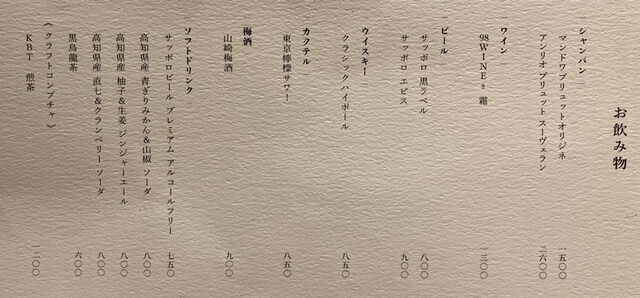 お飲み物
シャンパン
マンドワ ブリュット オリジネ 一五〇〇
アンリオ ブリュット スーヴェラン 二六〇〇
ワイン
98WINEs 霜 一三〇〇
ビール
サッポロ 黒ラベル 八〇〇
サッポロ エビス 九〇〇
ウイスキー
クラシックハイボール 八五〇
カクテル
東京檸檬サワー 八五〇
梅酒
山崎梅酒 九〇〇
ソフトドリンク
サッポロビール プレミアム アルコールフリー 七五〇
高知県産 青ぎりみかん&山椒 ソーダ 八〇〇
高知県産 柚子&生姜 ジンジャーエール 八〇〇
高知県産 直七&クランベリー ソーダ 八〇〇
黒烏龍茶 六〇〇
《クラフトコンブチャ》
KBT 煎茶 一二〇〇